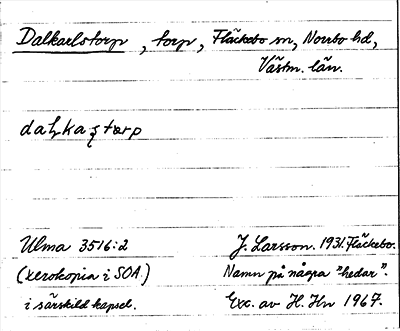 Dalkarlstorp, torp, Fläckebo sn, Norrbo hd,
Västm. län.
Ulma 3516:2
(xerokopia i SOA.)
i särskild kapsel.
J. Larsson. 1931. Fläckebo.
Namn på några "hedar".
Exc. av H. Hn 1967.